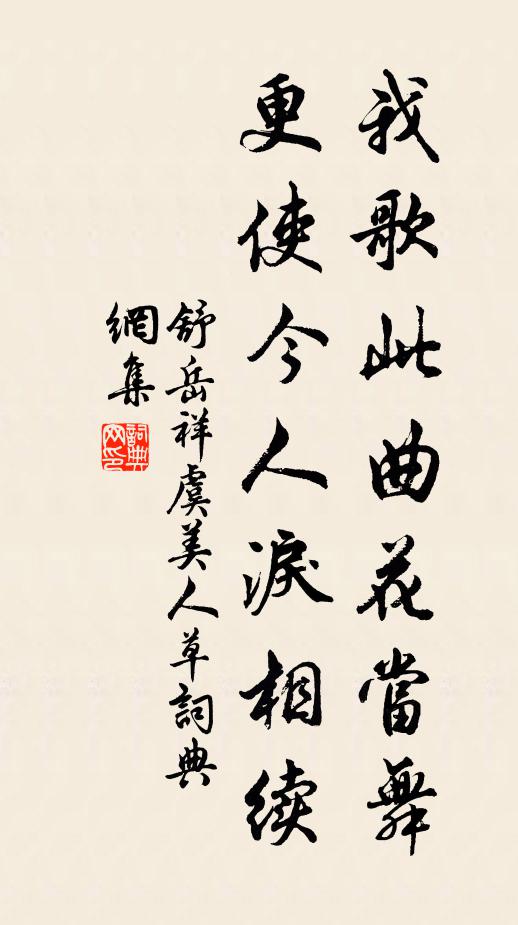 我歌此曲花當舞
更使今人淚相续
舒岳祥虞美人草詞典
網集
詞典網印